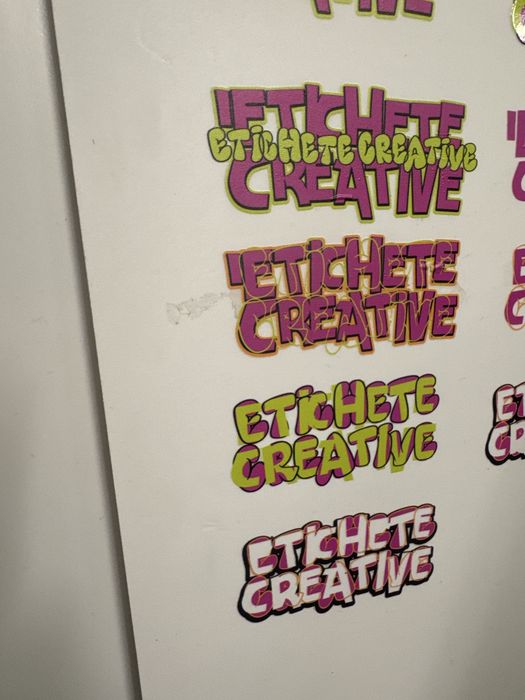 ETICHETE
ETICHETE CREATIVE
CREATIVE
ETICHETE
CREATIVE
ETICHETE
CREATIVE
ETICHETE
CREATIVE